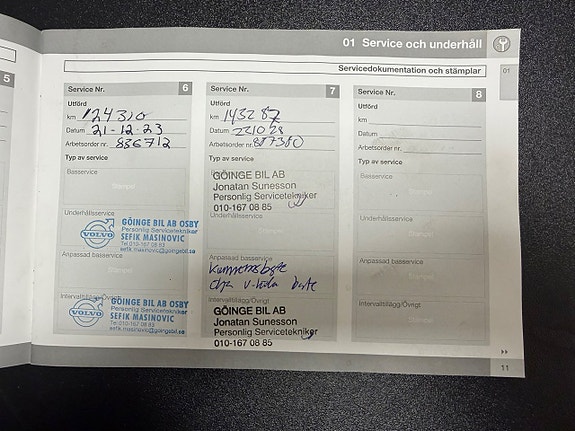 01 Service och underhåll
Servicedokumentation och stämplar
01
5
Service Nr. 6
Utförd
km 124310
Datum 21-12-23
Arbetsorder nr. 836712
Typ av service
Basservice
Stämpel
Underhållsservice
VOLVO
GÖINGE BIL AB OSBY
Personlig Servicetekniker
SEFIK MASINOVIC
Tel 010-167 08 83
sefik.masinovic@goingebil.se
Anpassad basservice
Stämpel
Intervalltillägg/Övrigt
VOLVO
GÖINGE BIL AB OSBY
Personlig Servicetekniker
SEFIK MASINOVIC
Tel 010-167 08 83
sefik.masinovic@goingebil.se
Service Nr. 7
Utförd
km 143287
Datum 221028
Arbetsorder nr. 887380
Typ av service
GÖINGE BIL AB
Jonatan Sunesson
Personlig Servicetekniker
010-167 08 85
Underhållsservice
Anpassad basservice
Intervalltillägg/Övrigt
GÖINGE BIL AB
Jonatan Sunesson
Personlig Servicetekniker
010-167 08 85
Service Nr. 8
Utförd
km
Datum
Arbetsorder nr.
Typ av service
Basservice
Stämpel
Underhållsservice
Stämpel
Anpassad basservice
Stämpel
Intervalltillägg/Övrigt
Stämpel
11